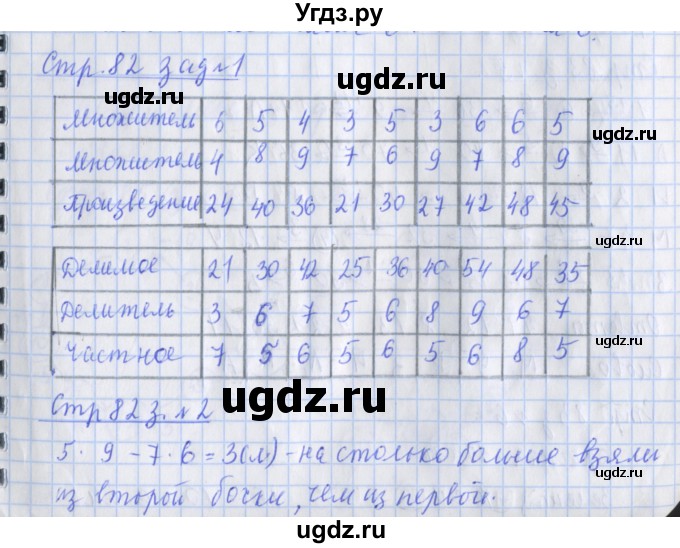 Угдз.ру
Стр. 82 зад №1
ugdz.ru ugdz.ru
Множитель 6 5 4 3 5 3 6 6 5
Множитель 4 8 9 7 6 9 7 8 9
ugdz.ru ugdz.ru ugdz.ru
Произведение 24 40 36 21 30 27 42 48 45
ugdz.ru
Делимое 21 30 42 25 36 40 54 48 35
ugdz.ru
Делитель 3 6 7 5 6 8 9 6 7
ugdz.ru ugdz.ru
Частное 7 5 6 5 6 5 6 8 5
Стр 82 з. №2
ugdz.ru ugdz.ru
5 · 9 - 7 · 6 = 3(л) - на столько больше взяли
ugdz.ru
из второй бочки, чем из первой.
ugdz.ru
ugdz.ru